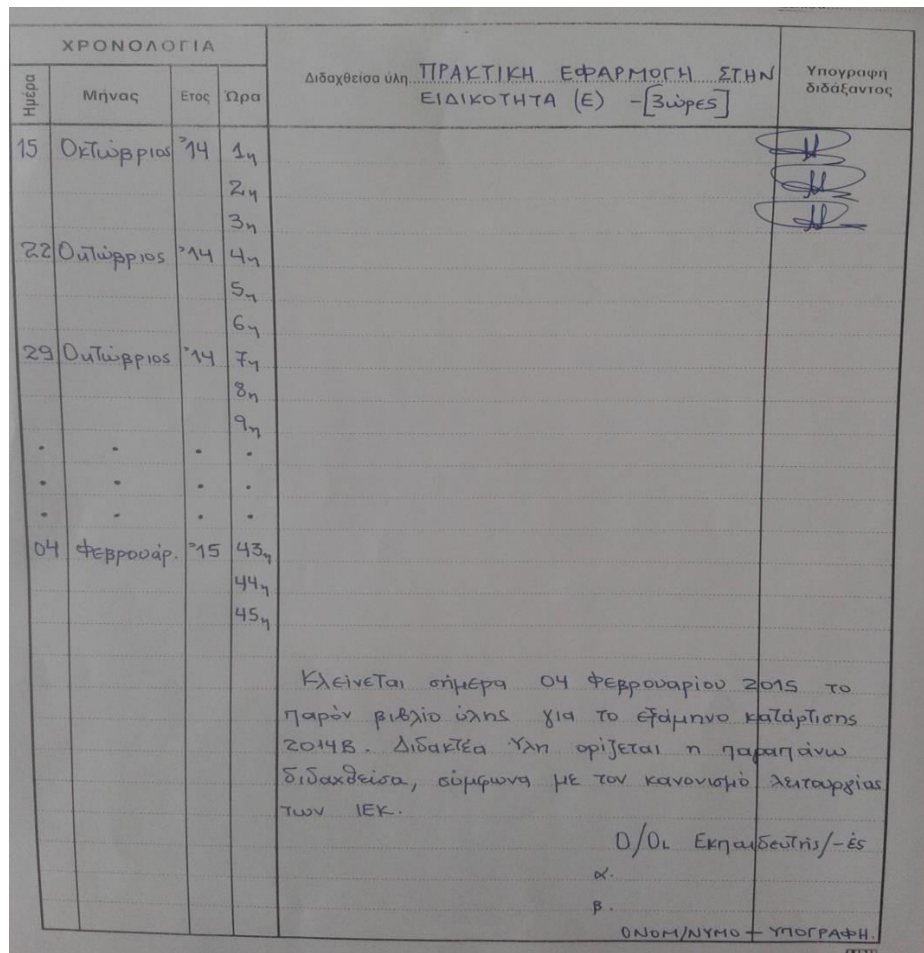 ΧΡΟΝΟΛΟΓΙΑ
Ημέρα Μήνας Ετος Ώρα
Διδαχθείσα ύλη ΠΡΑΚΤΙΚΗ ΕΦΑΡΜΟΓΗ ΣΤΗΝ
ΕΙΔΙΚΟΤΗΤΑ (Ε) -[3ώρες]
Υπογραφη
διδάξαντος
15 Οκτώβριος '14 1η
2η
3η
22 Οκτώβριος '14 4η
5η
6η
29 Οκτώβριος '14 7η
8η
9η
. . . .
. . . .
. . . .
04 Φεβρουάρ. '15 43η
44η
45η
Κλείνεται σήμερα 04 Φεβρουαρίου 2015 το
παρόν βιβλίο ύλης για το εξάμηνο κατάρτισης
2014Β. Διδακτέα Ύλη ορίζεται η παραπάνω
διδαχθείσα, σύμφωνα με τον κανονισμό λειτουργίας
των ΙΕΚ.
Ο/Οι Εκπαιδευτής/-ές
α.
β.
ΟΝΟΜ/ΝΥΜΟ + ΥΠΟΓΡΑΦΗ.